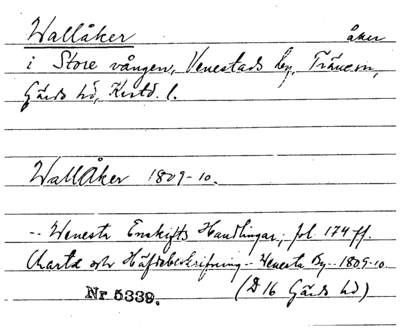 Wallåker åker
i Store vången, Venestads by, Träne sn,
Gärds hd, Kristd. l.
WallÅker 1809-10.
-- Wenesta Enskifts Handlingar, fol 174 ff.
Charta och Häfdebeskrifning -- Wenesta By -- 1809-10.
Nr 5339. (D 16 Gärds hd)